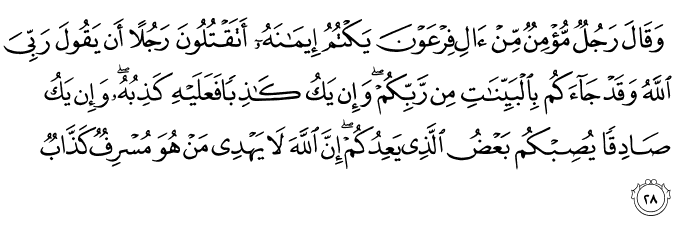 وَقَالَ رَجُلٌ مُّؤْمِنٌ مِّنْ ءَالِ فِرْعَوْنَ يَكْتُمُ إِيمَـٰنَهُۥٓ أَتَقْتُلُونَ رَجُلًا أَن يَقُولَ رَبِّىَ
ٱللَّهُ وَقَدْ جَآءَكُم بِٱلْبَيِّنَـٰتِ مِن رَّبِّكُمْ ۖ وَإِن يَكُ كَـٰذِبًا فَعَلَيْهِ كَذِبُهُۥ ۖ وَإِن يَكُ
صَادِقًا يُصِبْكُم بَعْضُ ٱلَّذِى يَعِدُكُمْ ۖ إِنَّ ٱللَّهَ لَا يَهْدِى مَنْ هُوَ مُسْرِفٌ كَذَّابٌ
٢٨